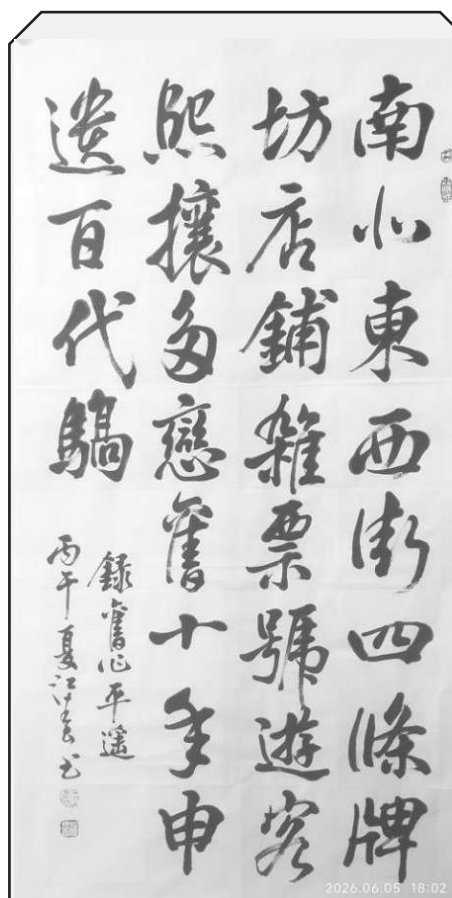 南北東西街四條牌
坊店鋪雜票號遊客
熙攘多戀舊十年申
遺百代驕
錄舊作平遙
丙午夏江
2026.06.05 18:02